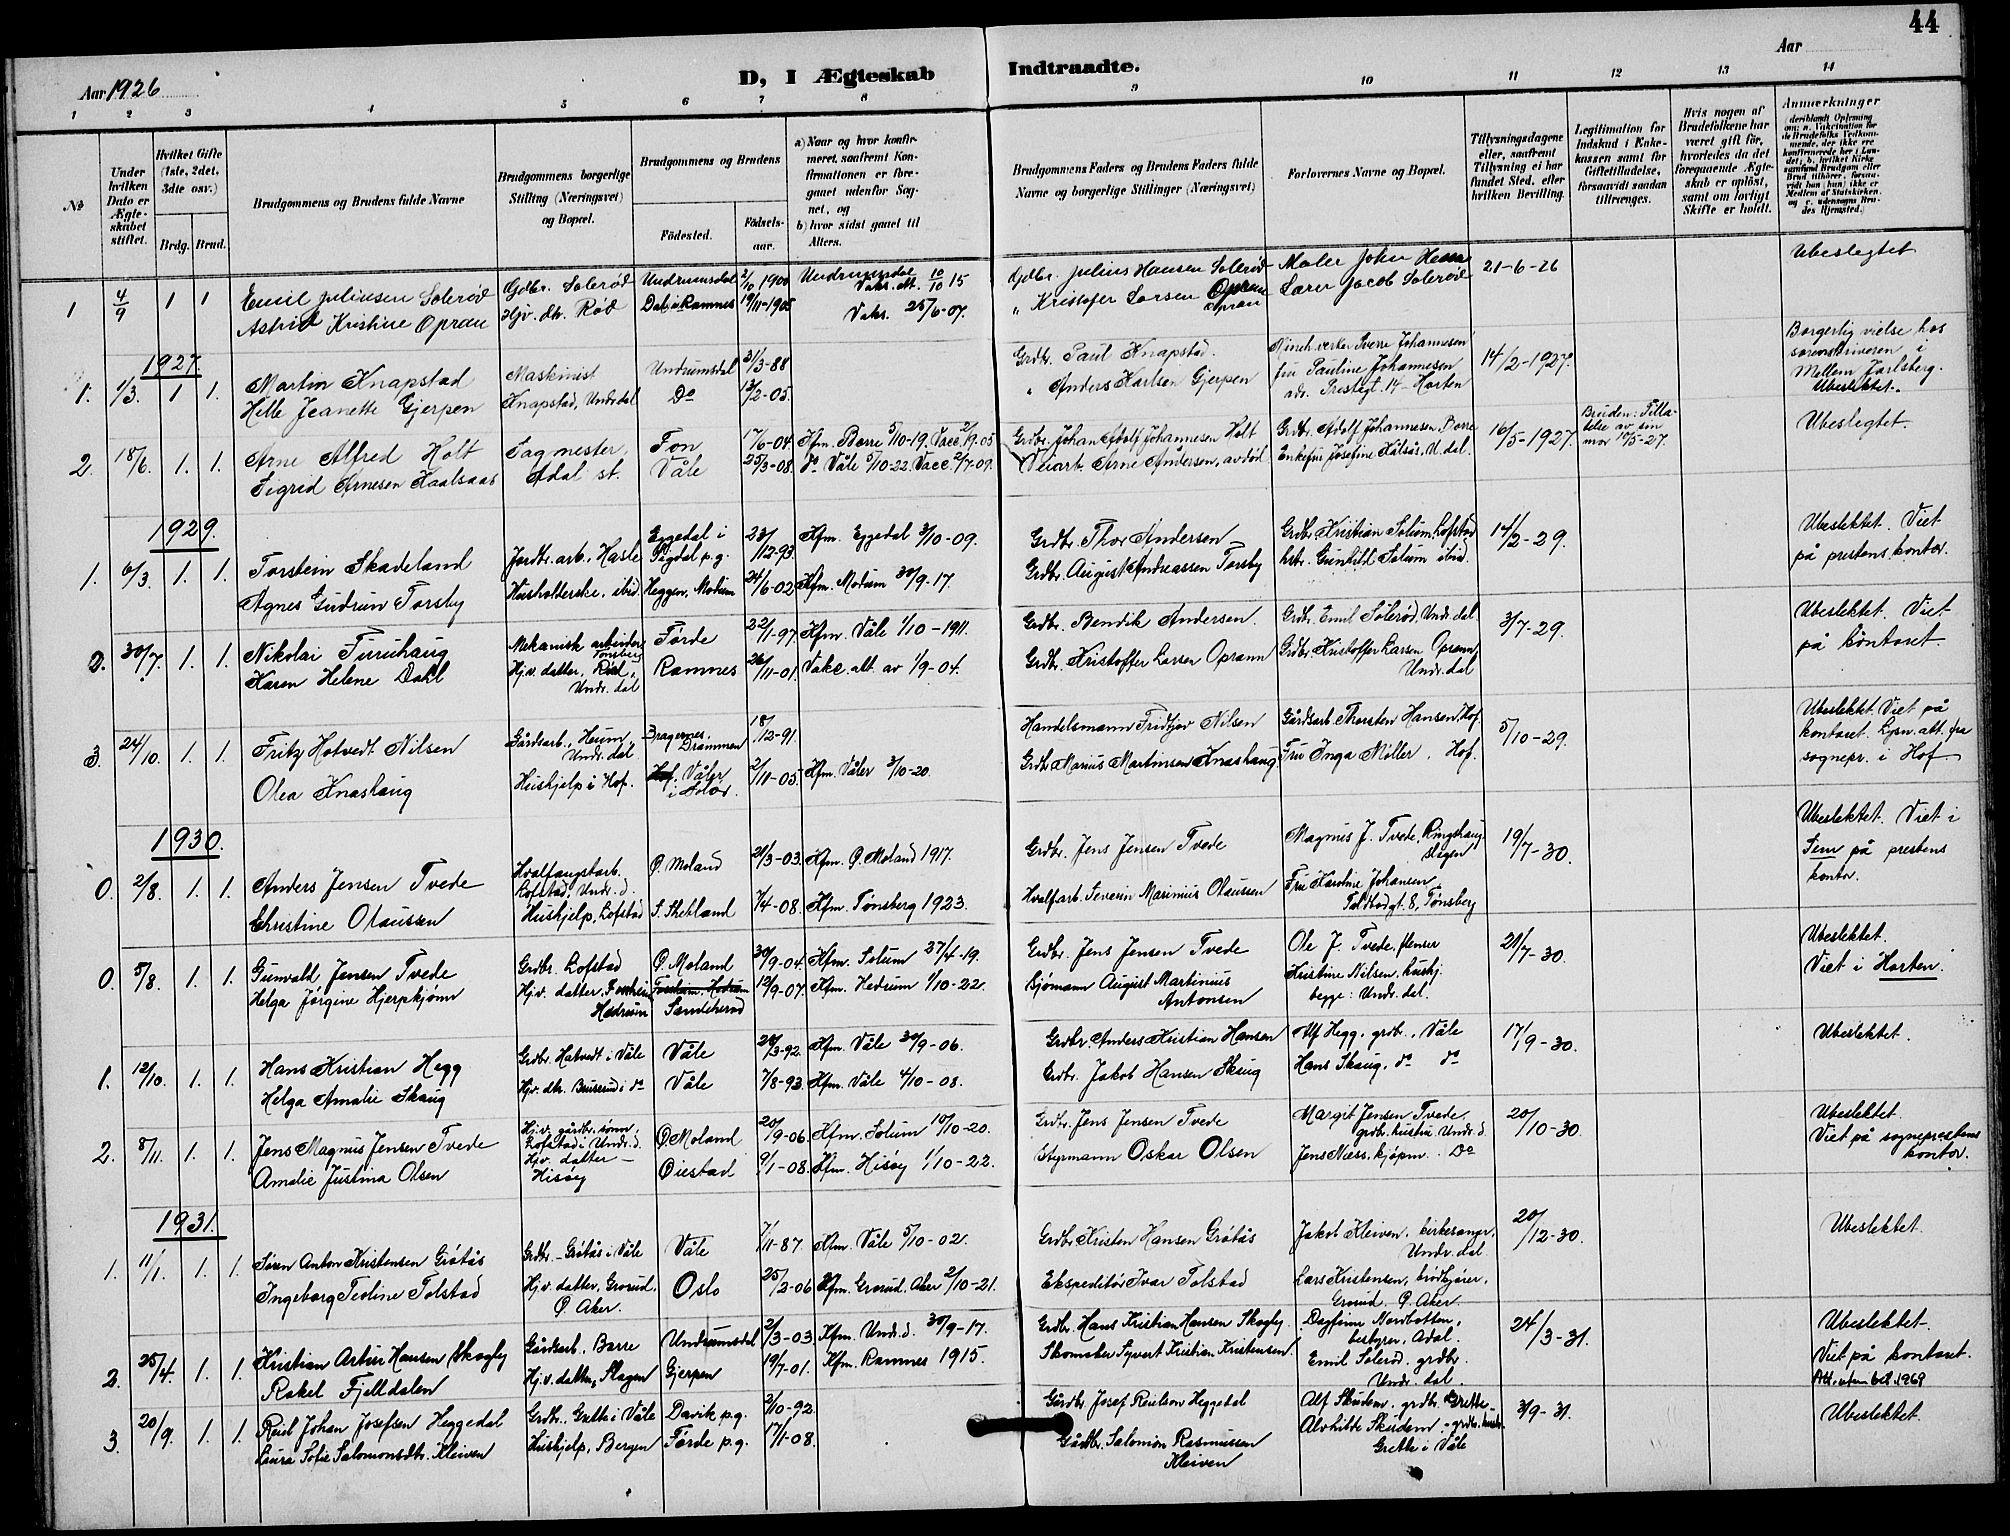 44
Aar 1926
D, I Ægteskab Indtraadte.
Aar
1 2 3 4 5 6 7 8 9 10 11 12 13 14
№
Under hvilken Dato er Ægteskabet stiftet.
Hvilket Gifte (1ste, 2det, 3die osv.)
Brdg. Brud.
Brudgommens og Brudens fulde Navne
Brudgommens borgerlige Stilling (Næringsvei) og Bopæl.
Brudgommens og Brudens
Fødested.
Fødselsaar.
a) Naar og hvor konfirmeret, saafremt Konfirmationen er foregaaet udenfor Sognet, og
b) hvor sidst gaaet til Alters.
Brudgommens Faders og Brudens Faders fulde Navne og borgerlige Stillinger (Næringsvei)
Forlovernes Navne og Bopæl.
Tillysningsdagene eller, saafremt Tillysning ei har fundet Sted, efter hvilken Bevilling.
Legitimation for Indskud i Enkekassen samt for Giftetilladelse, forsaavidt saadan tiltrænges.
Hvis nogen af Brudefolkene har været gift før, hvorledes da det foregaaende Ægteskab er opløst, samt om lovligt Skifte er holdt.
Anmerkninger
1 4/9 1 1 Emil Juliusen Solerød Gdbr. Solerød Undrumsdal 2/10 1900 Undrumsdal 10/10 15 Gdbr. Julius Hansen Solerød Maler John 21-6-26 Ubeslegtet
Astrid Kristine Opran Hjv. dtr. Rød Dal i Ramnes 19/11-1905 Vaks. 25/6-07. " Kristofer Larsen Opran Lærer Jacob Solerød
1927.
1. 1/3. 1 1. Martin Knapstad Maskinist Undrumsdal 31/3-88 Grdbr. Paul Knapstad. Sverre Johannesen 14/2-1927. Borgerlig vielse hos
Helle Jeanette Gjerpen Knapstad, Undr.dal Do 13/2-05. " Anders Karlsen Gjerpen fru Pauline Johannesen sorenskriveren i
adr. Prestegt. 14 - Horten Mellem Jarlsberg.
Ubeslektet.
2. 18/6. 1. 1. Arne Alfred Holt Sagmester, Fon 7/6-04. Kfm. Borre 5/10-19. Vacc. 2/9-05 Grdbr. Johan Adolf Johannesen Holt Grdbr. Adolf Johannesen, Borre 16/5-1927. Bruden: Tilladelse av sin mor 10/5-27. Ubeslegtet.
Sigrid Arnesen Kaalsaas Adal st. Våle 25/3-08. do Våle 5/10-22. Vacc. 2/7-09. Veiarb. Arne Andersen, avdød Enkefru Josefine Kålsås, U.dal.
1929.
1. 6/3. 1. 1. Torstein Skadeland Jordbr. arb. Hasle Eggedal i Sigdal p.g. 23/12-93. Kfm. Eggedal 3/10-09. Grdbr. Thor Andersen Grdbr. Kristian Solum, Lofstad 14/2-29. Ubeslektet. Viet
Agnes Gudrun Torsby Husholderske, ibid. Heggen, Modum 24/6-02 Kfm. Modum 30/9-17. Grdbr. August Andreassen Torsby hstr. Gunhild Solum ibid. på prestens kontor.
2. 30/7. 1. 1. Nikolai Furuhaug Mekanisk arbeider Tønsberg Førde 22/1-97. Kfm. Våle 1/10-1911. Grdbr. Bendik Andersen. Grdbr. Emil Solerød, Undr.dal 3/7-29. Ubeslektet. Viet
Karen Helene Dahl Hjv. datter, Rød, Undr. dal Ramnes 26/11-01. Vakc. alt. av 1/9-04. Grdbr. Kristoffer Larsen Oprann Grdbr. Kristoffer Larsen Oprann, Undr. dal på kontoret.
3. 24/10. 1. 1. Fritz Hotvedt Nilsen Gårdsarb., Heum, Undr. dal Bragernes. Drammen 18/12-91. Handelsmann Fridtjov Nilsen Gårdsarb. Thorsten Hansen, Hof 5/10-29. Ubeslektet. Viet på
Olea Knashaug Hushjelp i Hof. Våler i Solør. 2/11-05. Kfm. Våler 3/10-20. Grdbr. Marius Martinsen Knashaug Fru Inga Møller, Hof. kontoret. Lysn. att. fra
sognepr. i Hof
1930.
0. 2/8. 1. 1. Anders Jensen Tvede Hvalfangstarb. Lofstad, Undr. d. Ø. Moland 21/3-03. Kfm. Ø. Moland 1917. Grdbr. Jens Jensen Tvede Magnus J. Tvede, Ringshaug, Slagen 19/7-30. Ubeslektet. Viet i
Christine Olaussen Hushjelp, Lofstad S. Shetland 7/4-08. Kfm. Tønsberg 1923. Hvalfarb. Severin Marinius Olaussen Fru Karoline Johansen Toldbodgt. 8, Tønsberg Sem på prestens kontor.
0. 5/8. 1. 1. Gunvald Jensen Tvede Grdbr. Lofstad Ø. Moland 30/9-04. Kfm. Solum 27/4-19. Grdbr. Jens Jensen Tvede Ole J. Tvede, 21/7-30. Ubeslektet.
Helga Jørgine Hjerpkjønn Hjv. datter, Hedrum Sandeherad 12/9-07. Kfm. Hedrum 1/10-22. Sjømann August Martinius Antonsen Kristine Nilsen, hushj. begge: Undr. dal. Viet i Horten.
1. 12/10. 1. 1. Hans Kristian Hegg Grdbr. Hotvedt i Våle Våle 28/3-92. Kfm. Våle 30/9-06. Grdbr. Anders Kristian Hansen Alf Hegg, grdbr., Våle 17/9-30. Ubeslektet.
Helga Amalie Skaug Hjv. dtr. Buserud i do Våle 7/8-93. Kfm. Våle 4/10-08. Grdbr. Jakob Hansen Skaug Hans Skaug, do do
2. 8/11. 1. 1. Jens Magnus Jensen Tvede Hj.v. gårdbr. sønn, Lofstad i Undr. d. Ø Moland 20/9-06. Kfm. Solum 10/10-20. Grdbr. Jens Jensen Tvede Margit Jensen Tvede, grdbr. hustru, Undr. d. 20/10-30. Ubeslektet.
Amalie Justina Olsen Hjv. datter - Hisøy Øiestad 9/1-08. Kfm. Hisøy 1/10-22. Styrmann Oskar Olsen Jens Næss, kjøpm. Do Viet på sogneprestens kontor.
1931.
1. 11/1. 1. 1. Sven Anton Kristensen Grøtås Grdbr. - Grøtås i Våle Våle 7/11-87. Kfm. Våle 5/10-02. Grdbr. Kristen Hansen Grøtås Jakob Kleiven, kirkesanger, Undr. dal 20/12-30. Ubeslektet.
Ingeborg Teoline Tolstad Hj.v. datter, Grorud, Ø. Aker. Oslo 25/2-06 Kfm. Grorud, Aker 2/10-21. Ekspeditør Ivar Tolstad Lars Kristensen, brødkjører, Grorud, Ø. Aker.
2. 25/4. 1. 1. Kristian Artur Hansen Skogly Gårdsarb., Borre Undrumsdal 2/3-03. Kfm. Undr. d. 30/9-17. Grdbr. Hans Kristian Hansen Skogly. Dagfinn Nordbotten, bestyrer, Adal. 24/3-31. Ubeslektet.
Rakel Fjelldalen Hj.v. datter, Slagen Gjerpen 19/7-01. Kfm. Ramnes 1915. Skomaker Syvert Kristian Kristensen. Emil Solerød, grdbr. Undr. dal. Viet på kontoret.
3. 20/9. 1. 1. Reiel Johan Josefsen Heggedal Grdbr. Grette i Våle Davik p.g. 2/10-92. Gårdbr. Josef Reielson Heggedal Alf Skudem, grdbr. Grette- 3/9-31. Ubeslektet.
Laura Sofie Salomonsdtr. Kleiven Hushjelp, Bergen Førde p.g. 17/1-08. Gårdbr. Salomon Rasmussen Kleiven Alvhilde Skudem, grdbr. hustr. Grette i Våle